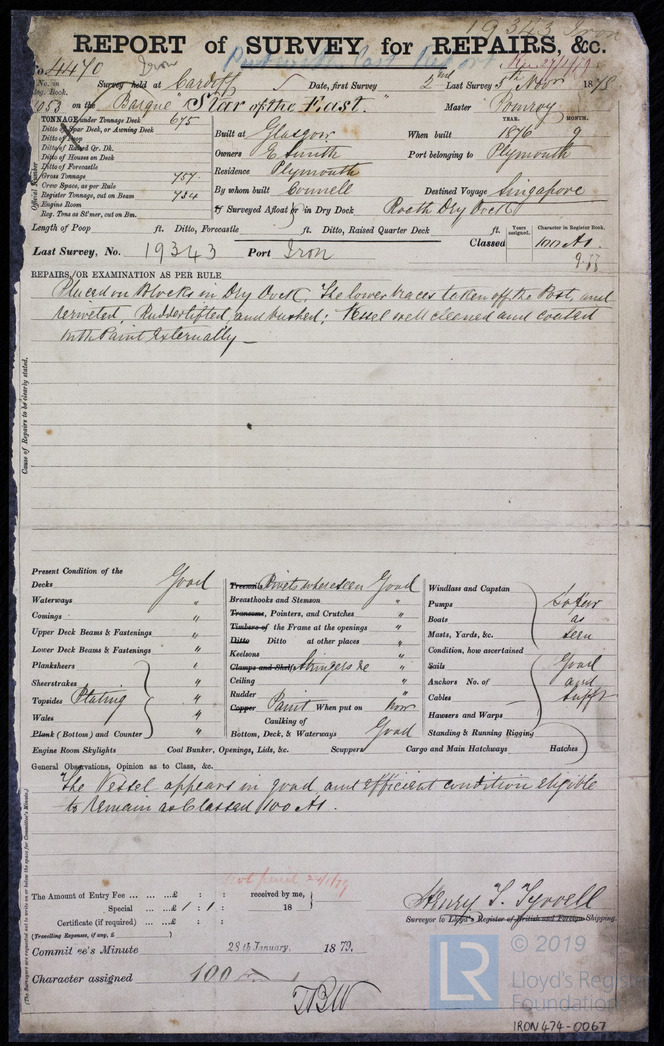 19343 Iron
REPORT of SURVEY for REPAIRS, &c.
No. 4470 Iron
No. in Reg. Book. Survey held at Cardiff Date, first Survey 2nd Last Survey 5th Novr 1878
1053 on the Barque Star of the East. Master Pomroy
TONNAGE under Tonnage Deck 675
Ditto of Spar Deck, or Awning Deck
Ditto of Poop
Ditto of Raised Qr. Dk.
Ditto of Houses on Deck
Ditto of Forecastle
Gross Tonnage 757
Crew Space, as per Rule
Register Tonnage, cut on Beam 734
Engine Room
Reg. Tons as St'mer, cut on Bm.
Official Number
YEAR. MONTH.
Built at Glasgow When built 1876 9
Owners E Smith Port belonging to Plymouth
Residence Plymouth
By whom built Connell Destined Voyage Singapore
If Surveyed Afloat or in Dry Dock Roath Dry Dock
Length of Poop ft. Ditto, Forecastle ft. Ditto, Raised Quarter Deck ft.
Classed Years assigned. Character in Register Book.
100 A1.
Last Survey, No. 19343 Port Iron
REPAIRS, OR EXAMINATION AS PER RULE
Placed on Blocks in Dry Dock. The lower braces taken off the Post, and
reriveted Rudder lifted, and bushed: Vessel well cleaned and coated
with Paint Externally —
Cause of Repairs to be clearly stated.
Present Condition of the
Decks Good
Waterways "
Comings "
Upper Deck Beams & Fastenings "
Lower Deck Beams & Fastenings "
Planksheers "
Sheerstrakes "
Topsides Plating "
Wales "
Plank (Bottom) and Counter "
Treenails Rivets where seen Good
Breasthooks and Stemson "
Transoms, Pointers, and Crutches "
Timbers of the Frame at the openings "
Ditto Ditto at other places "
Keelsons "
Clamps and Shelfs Stringers &c "
Ceiling "
Rudder "
Copper Paint When put on Now
Caulking of
Bottom, Deck, & Waterways Good
Windlass and Capstan
Pumps
Boats
Masts, Yards, &c.
So far as seen
Condition, how ascertained
Sails
Anchors No. of
Cables
Hawsers and Warps
Standing & Running Rigging
Good and sufft
Engine Room Skylights Coal Bunker, Openings, Lids, &c. Scuppers Cargo and Main Hatchways Hatches
General Observations, Opinion as to Class, &c.
The Vessel appears in good and efficient condition eligible
to remain as Classed 100 A1.
The Amount of Entry Fee £ : : received by me,
Special £ 1 : 1 : 18
Certificate (if required) £ : :
(Travelling Expenses, if any, £ )
Henry T. Tyrrell
Surveyor to Lloyd's Register of British and Foreign Shipping.
Committee's Minute 28th January, 1879.
Character assigned 100
TBW
(The Surveyors are requested not to write on or below the space for Committee's Minute.)
LR
© 2019
Lloyd's Register
Foundation
IRON474-0067